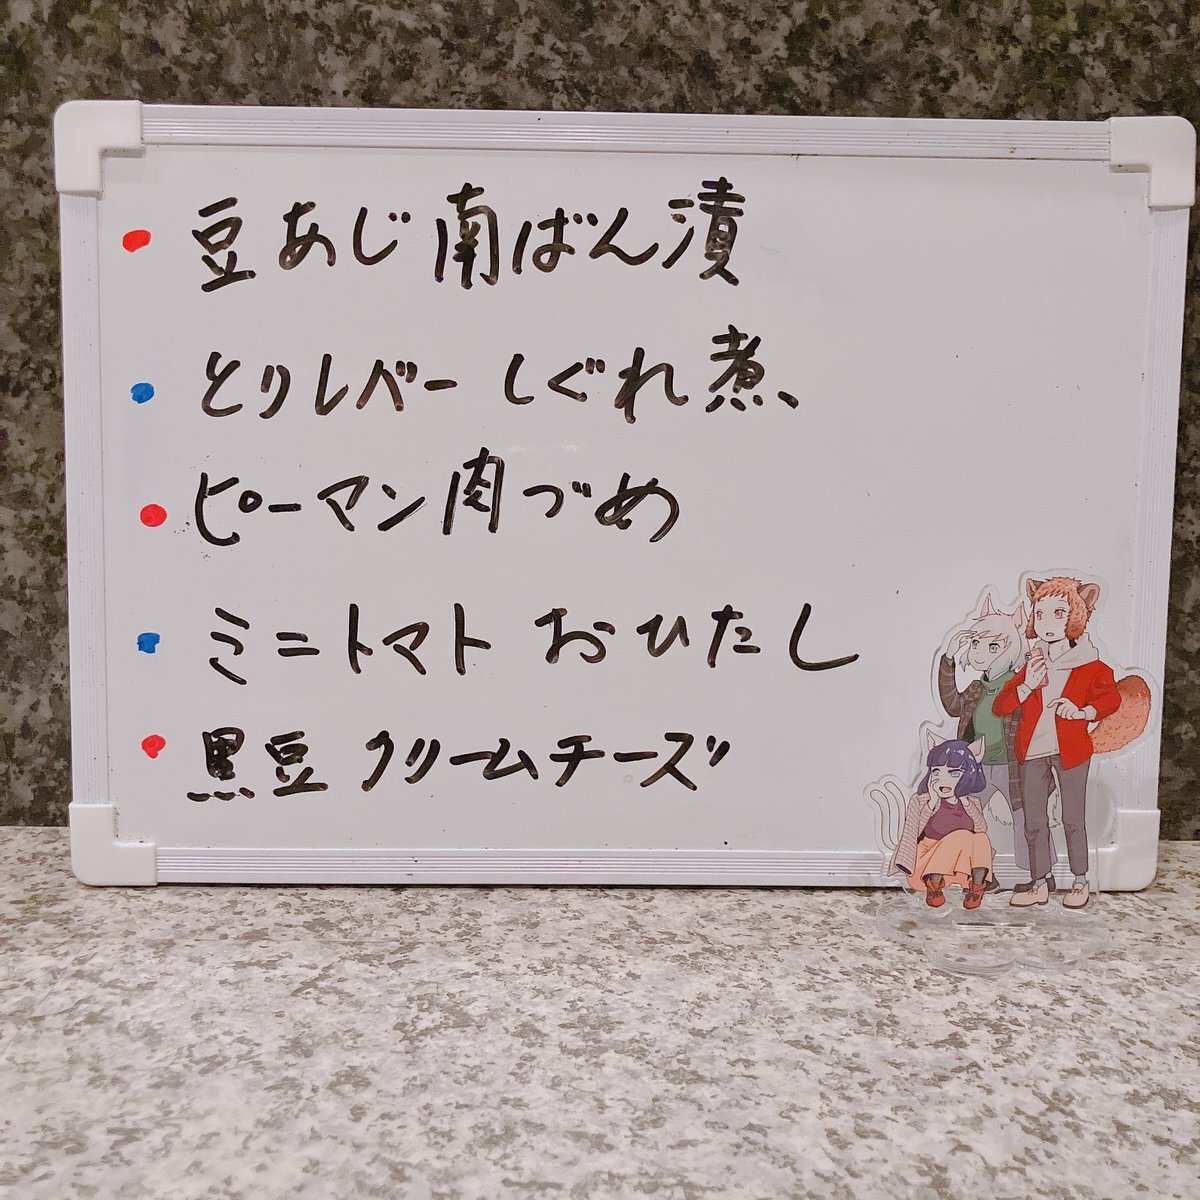 ・豆あじ南ばん漬
・とりレバーしぐれ煮、
・ピーマン肉づめ
・ミニトマト おひたし
・黒豆 クリームチーズ